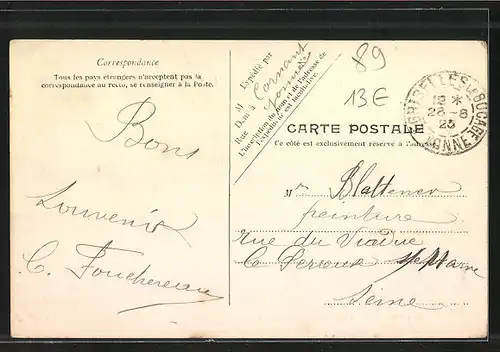 Correspondance
Tous les pays étrangers n'acceptent pas la
correspondance au recto, se renseigner à la Poste.
Bons
Souvenirs
C. Fouchereau
Expédié par
M Cornant
Dem. à Yonne
Rue
L'inscription du nom et de l'adresse de
l'expéditeur est facultative.
89
13E
CARTE POSTALE
Ce côté est exclusivement réservé à l'adresse
12 *
28-8
23
YONNE
M
peinture
rue du Viaduc
s/Marne
Seine